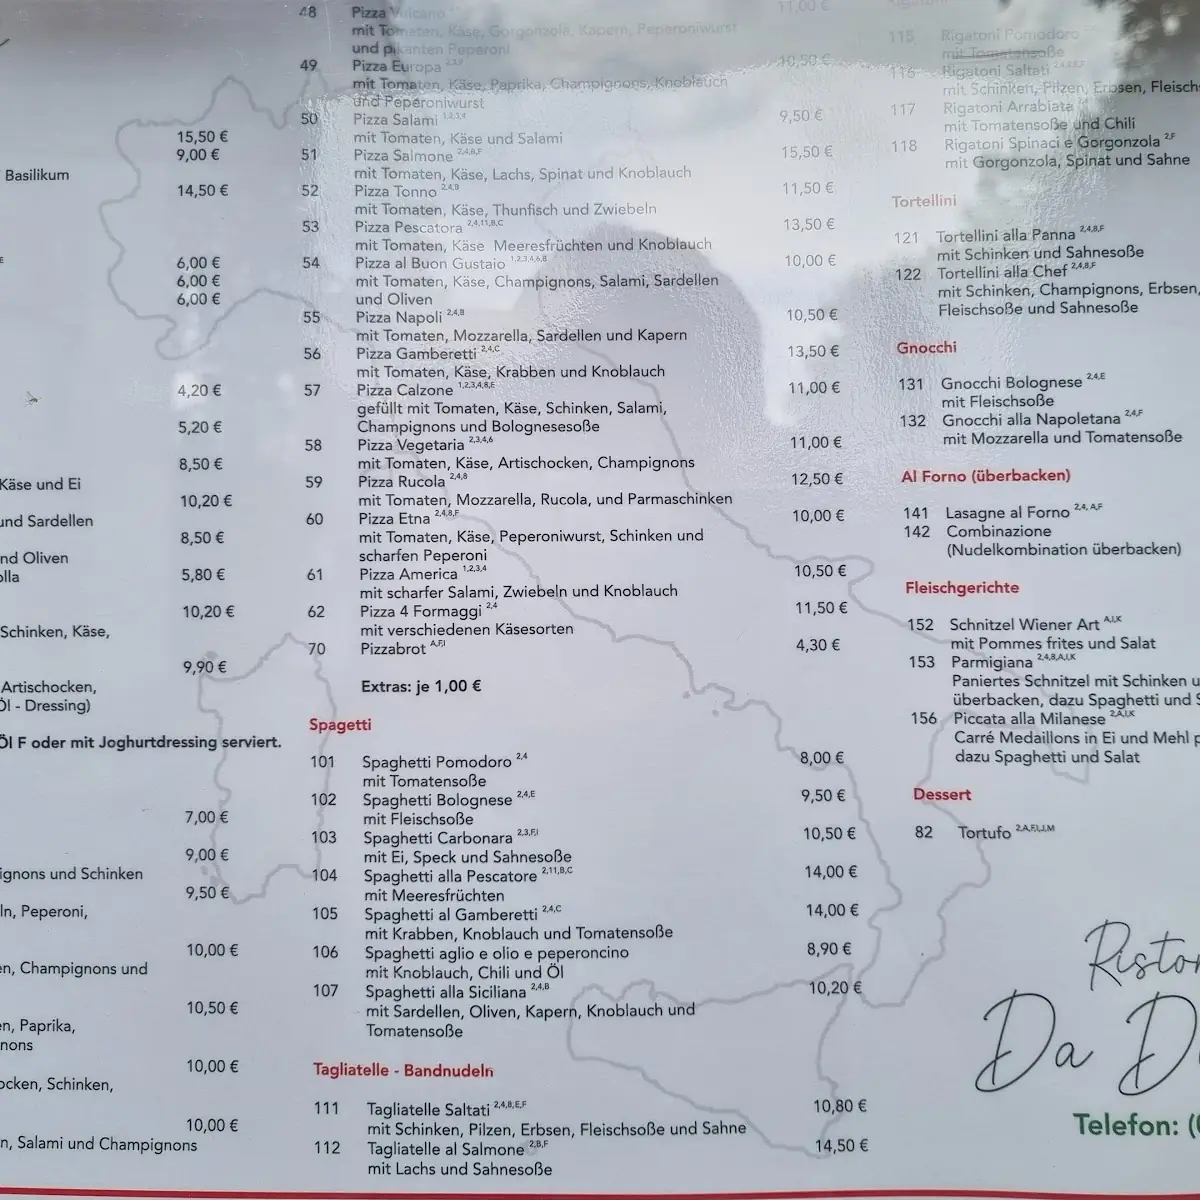 15,50 €
9,00 €
Basilikum
14,50 €
E
6,00 €
6,00 €
6,00 €
4,20 €
5,20 €
8,50 €
Käse und Ei
10,20 €
und Sardellen
8,50 €
nd Oliven
olla
5,80 €
10,20 €
Schinken, Käse,
9,90 €
Artischocken,
Öl - Dressing)
Öl F oder mit Joghurtdressing serviert.
7,00 €
9,00 €
ignons und Schinken
9,50 €
ln, Peperoni,
10,00 €
en, Champignons und
10,50 €
en, Paprika,
nons
10,00 €
ocken, Schinken,
10,00 €
n, Salami und Champignons
48 Pizza Vulcano 11,00 €
mit Tomaten, Käse, Gorgonzola, Kapern, Peperoniwurst
und pikanten Peperoni
49 Pizza Europa 10,50 €
mit Tomaten, Käse, Paprika, Champignons, Knoblauch
und Peperoniwurst
50 Pizza Salami 1,2,3,4 9,50 €
mit Tomaten, Käse und Salami
51 Pizza Salmone 2,4,B,F 15,50 €
mit Tomaten, Käse, Lachs, Spinat und Knoblauch
52 Pizza Tonno 2,4,B 11,50 €
mit Tomaten, Käse, Thunfisch und Zwiebeln
53 Pizza Pescatora 2,4,11,B,C 13,50 €
mit Tomaten, Käse Meeresfrüchten und Knoblauch
54 Pizza al Buon Gustaio 1,2,3,4,6,B 10,00 €
mit Tomaten, Käse, Champignons, Salami, Sardellen
und Oliven
55 Pizza Napoli 2,4,B 10,50 €
mit Tomaten, Mozzarella, Sardellen und Kapern
56 Pizza Gamberetti 2,4,C 13,50 €
mit Tomaten, Käse, Krabben und Knoblauch
57 Pizza Calzone 1,2,3,4,8,E 11,00 €
gefüllt mit Tomaten, Käse, Schinken, Salami,
Champignons und Bolognesesoße
58 Pizza Vegetaria 2,3,4,6 11,00 €
mit Tomaten, Käse, Artischocken, Champignons
59 Pizza Rucola 2,4,8 12,50 €
mit Tomaten, Mozzarella, Rucola, und Parmaschinken
60 Pizza Etna 2,4,8,F 10,00 €
mit Tomaten, Käse, Peperoniwurst, Schinken und
scharfen Peperoni
61 Pizza America 1,2,3,4 10,50 €
mit scharfer Salami, Zwiebeln und Knoblauch
62 Pizza 4 Formaggi 2,4 11,50 €
mit verschiedenen Käsesorten
70 Pizzabrot A,F,I 4,30 €
Extras: je 1,00 €
Spagetti
101 Spaghetti Pomodoro 2,4 8,00 €
mit Tomatensoße
102 Spaghetti Bolognese 2,4,E 9,50 €
mit Fleischsoße
103 Spaghetti Carbonara 2,3,F,I 10,50 €
mit Ei, Speck und Sahnesoße
104 Spaghetti alla Pescatore 2,11,B,C 14,00 €
mit Meeresfrüchten
105 Spaghetti al Gamberetti 2,4,C 14,00 €
mit Krabben, Knoblauch und Tomatensoße
106 Spaghetti aglio e olio e peperoncino 8,90 €
mit Knoblauch, Chili und Öl
107 Spaghetti alla Siciliana 2,4,B 10,20 €
mit Sardellen, Oliven, Kapern, Knoblauch und
Tomatensoße
Tagliatelle - Bandnudeln
111 Tagliatelle Saltati 2,4,8,E,F 10,80 €
mit Schinken, Pilzen, Erbsen, Fleischsoße und Sahne
112 Tagliatelle al Salmone 2,B,F 14,50 €
mit Lachs und Sahnesoße
115 Rigatoni Pomodoro
mit Tomatensoße
116 Rigatoni Saltati
mit Schinken, Pilzen, Erbsen, Fleisch
117 Rigatoni Arrabiata
mit Tomatensoße und Chili
118 Rigatoni Spinaci e Gorgonzola 2,F
mit Gorgonzola, Spinat und Sahne
Tortellini
121 Tortellini alla Panna 2,4,8,F
mit Schinken und Sahnesoße
122 Tortellini alla Chef 2,4,8,F
mit Schinken, Champignons, Erbsen,
Fleischsoße und Sahnesoße
Gnocchi
131 Gnocchi Bolognese 2,4,E
mit Fleischsoße
132 Gnocchi alla Napoletana 2,4,F
mit Mozzarella und Tomatensoße
Al Forno (überbacken)
141 Lasagne al Forno 2,4, A,F
142 Combinazione
(Nudelkombination überbacken)
Fleischgerichte
152 Schnitzel Wiener Art A,I,K
mit Pommes frites und Salat
153 Parmigiana 2,4,8,A,I,K
Paniertes Schnitzel mit Schinken u
überbacken, dazu Spaghetti und S
156 Piccata alla Milanese 2,A,I,K
Carré Medaillons in Ei und Mehl p
dazu Spaghetti und Salat
Dessert
82 Tortufo 2,A,F,I,J,M
Ristor
Da D
Telefon: (